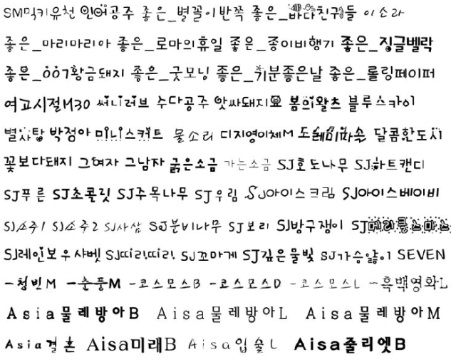 SM믹키유천 인어공주 좋은_별꼴이반쪽 좋은_바다친구들 이소라
좋은_마리마리아 좋은_로마의휴일 좋은_종이비행기 좋은_징글벨락
좋은_007황금돼지 좋은_굿모닝 좋은_기분좋은날 좋은_롤링페이퍼
여고시절M30 써니러브 수다공주 앗싸돼지꿈 봄의왈츠 블루스카이
별사탕 박정아 미니스커트 물소리 디지영이체M 도레미파솔 달콤한도시
꽃보다돼지 그여자 그남자 굵은소금 가는소금 SJ호도나무 SJ하트캔디
SJ푸른 SJ초콜릿 SJ주목나무 SJ우림 SJ아이스크림 SJ아이스베이비
SJ소주1 SJ소주2 SJ사삼 SJ분비나무 SJ보리 SJ방구쟁이
SJ레인보우샤벳 SJ띠리띠리 SJ꼬마게 SJ깊은물빛 SJ가슴앓이 SEVEN
-청빈M -순풍M -코스모스B -코스모스D -코스모스L -흑백영화L
Asia물레방아B Aisa물레방아L Aisa물레방아M
Asia결혼 Aisa미래B Aisa입술L Aisa줄리엣B